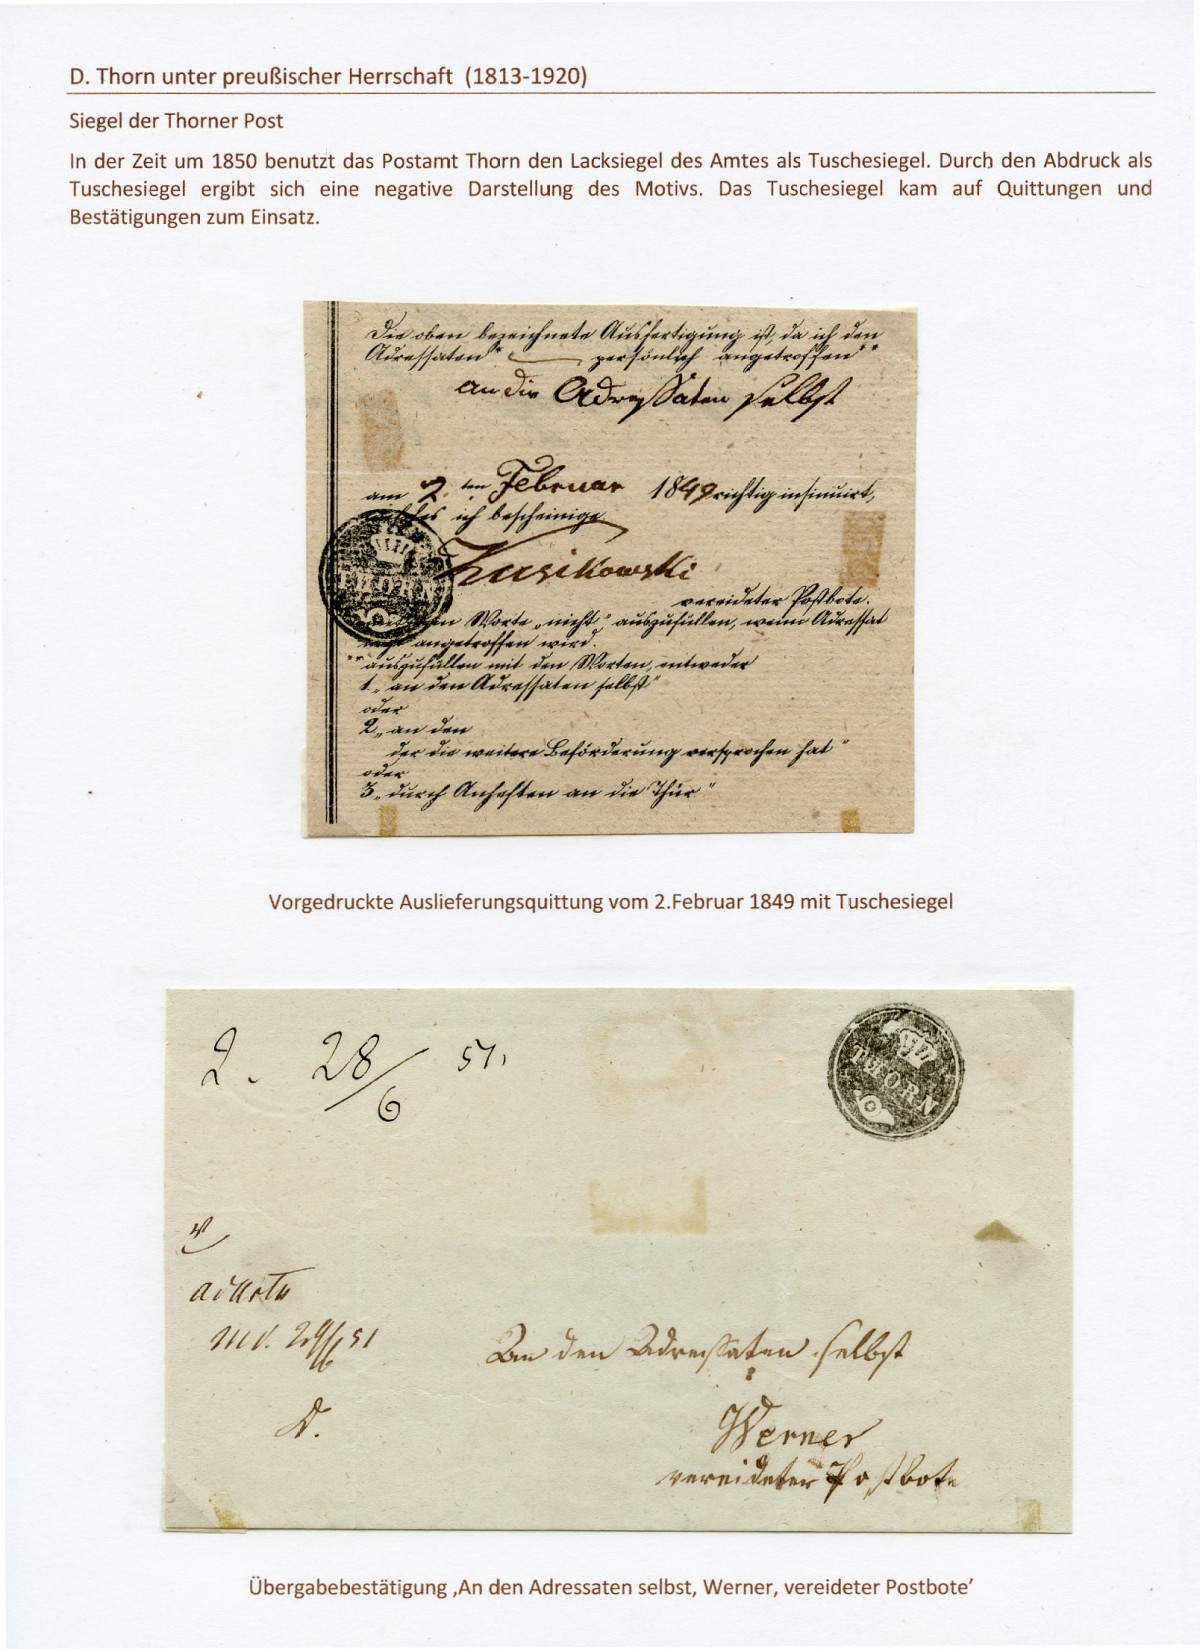 D. Thorn unter preußischer Herrschaft (1813-1920)
Siegel der Thorner Post
In der Zeit um 1850 benutzt das Postamt Thorn den Lacksiegel des Amtes als Tuschesiegel. Durch den Abdruck als
Tuschesiegel ergibt sich eine negative Darstellung des Motivs. Das Tuschesiegel kam auf Quittungen und
Bestätigungen zum Einsatz.
Die oben bezeichnete Ausfertigung ist, da ich den
Adressaten* persönlich angetroffen**
an die Adressaten selbst
am 2. ten Februar 1849 richtig insinuirt,
ich bescheinige.
Kusikowski
vereideter Postbote.
THORN
Worte „nicht" auszufüllen, wenn Adressat
nicht angetroffen wird.
** auszufüllen mit den Worten, entweder
1 „an den Adressaten selbst"
oder
2 „an den
der die weitere Beförderung versprochen hat"
oder
3 „durch Anheften an die Thür"
Vorgedruckte Auslieferungsquittung vom 2.Februar 1849 mit Tuschesiegel
2. 28/6 51,
THORN
29/6 51
An den Adressaten selbst
Werner
vereideter Postbote
Übergabebestätigung ‚An den Adressaten selbst, Werner, vereideter Postbote’